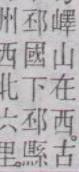 嶧山在西。古
邳國下邳縣
州西北六里。